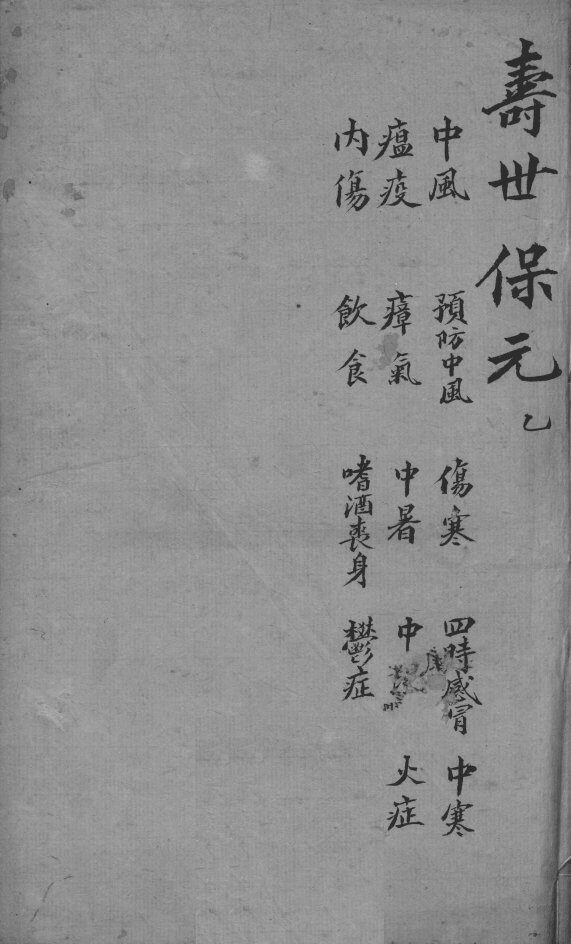 壽世保元 乙
中風 預防中風 傷寒 四時感冒 中寒
瘟疫 瘴氣 中暑 中 火症
內傷 飲食 嗜酒喪身 鬱症